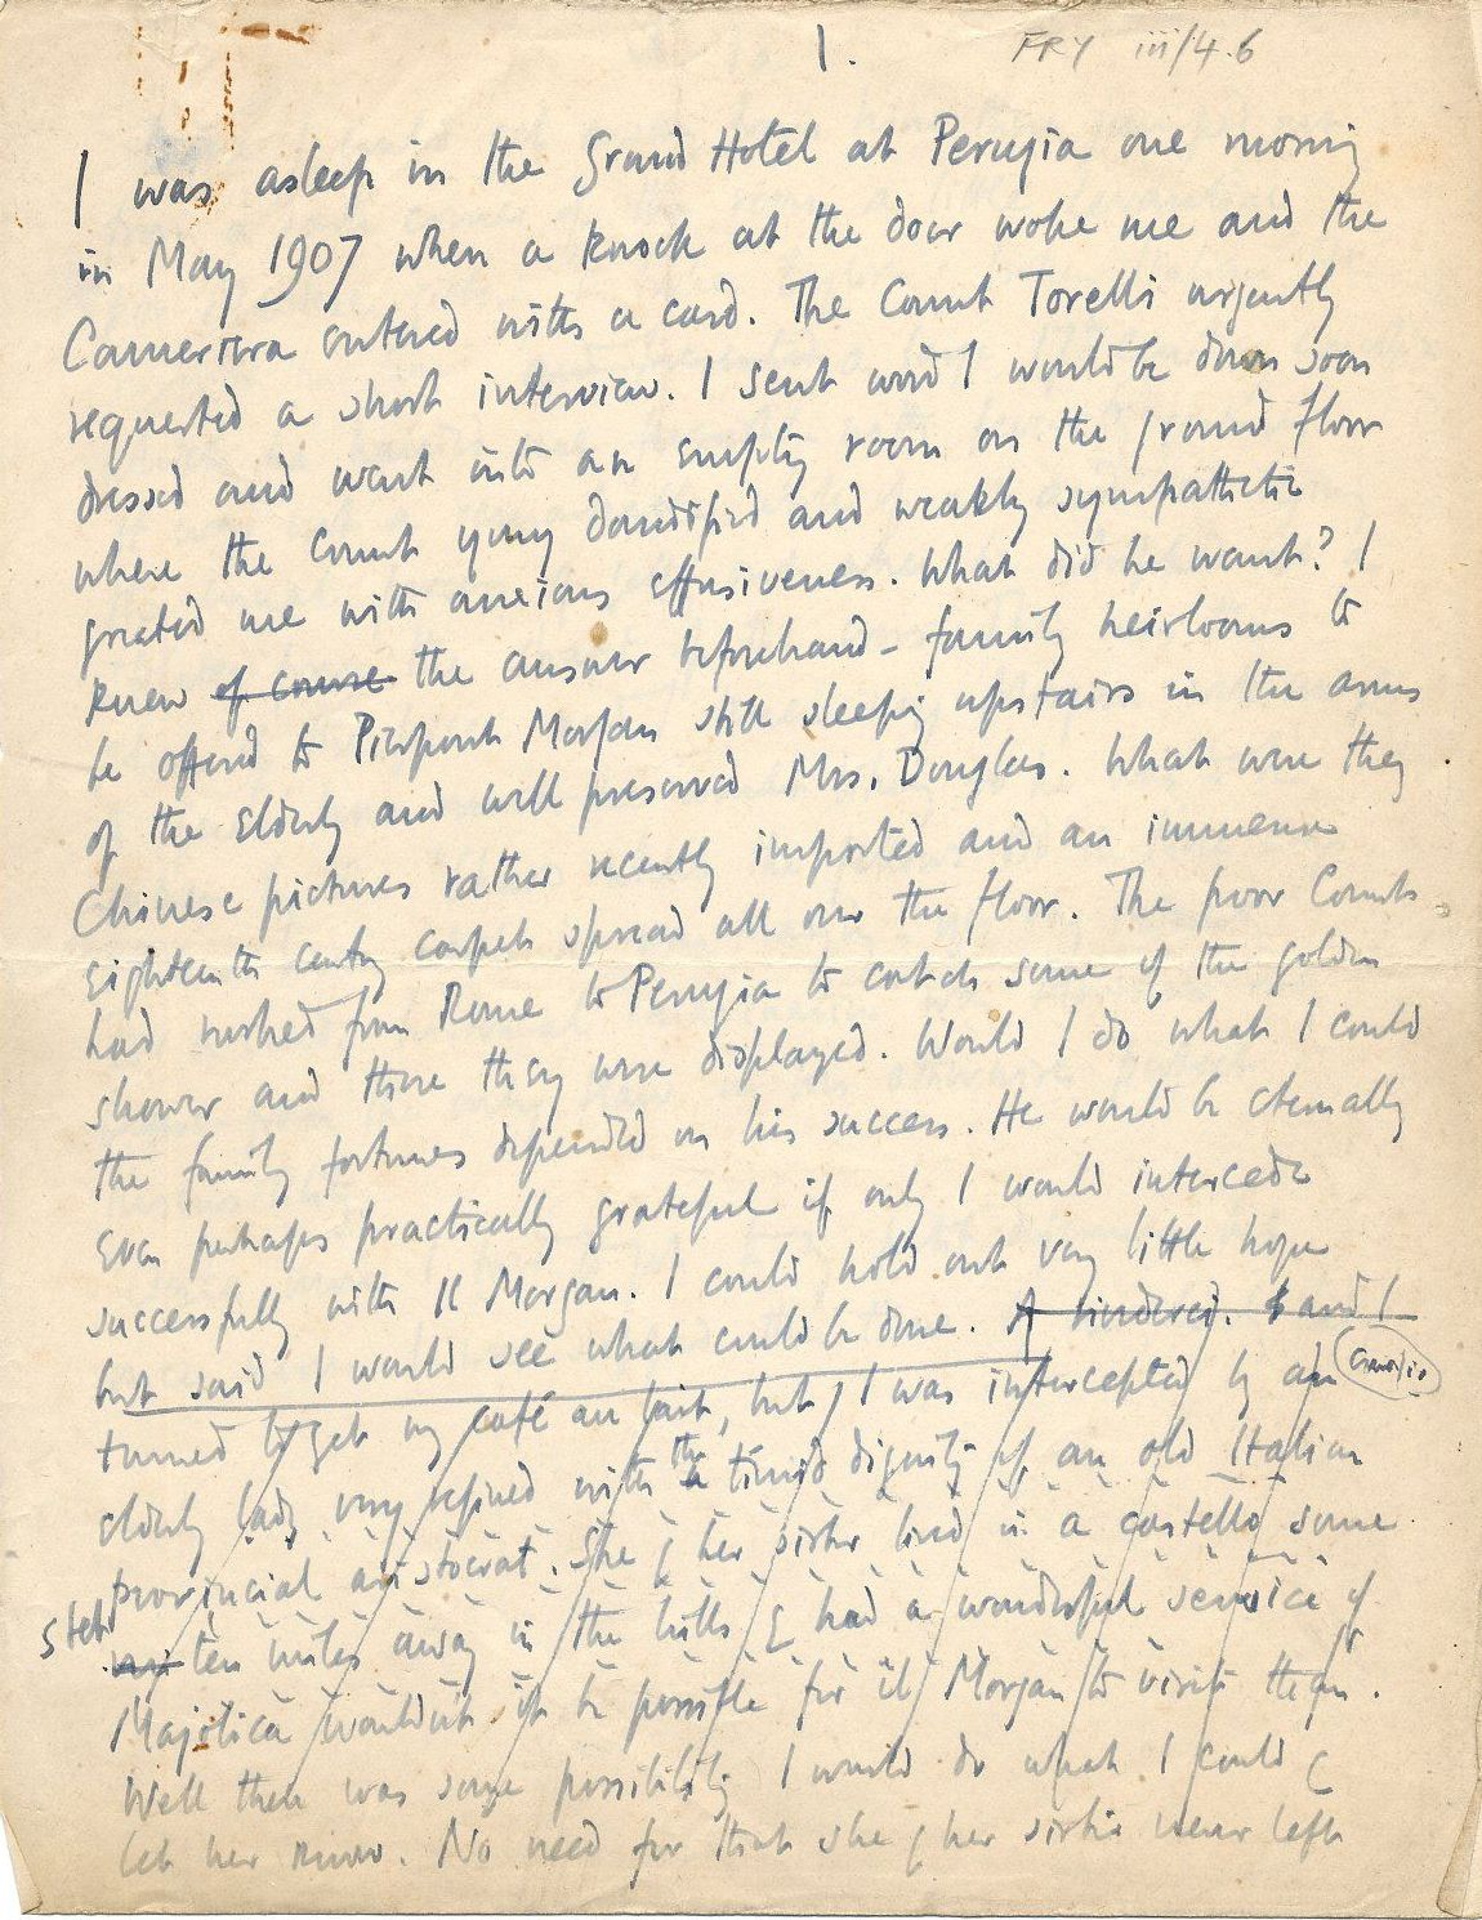 1.
FRY iii/4.6
I was asleep in the Grand Hotel at Perugia one morning
in May 1907 when a knock at the door woke me and the
Cameriera entered with a card. The Count Torelli urgently
requested a short interview. I sent word I would be down soon
dressed and went into an empty room on the ground floor
where the Count young dandified and weakly sympathetic
greeted me with anxious effusiveness. What did he want? I
knew of course the answer beforehand - family heirlooms to
be offered to Pierpont Morgan still sleeping upstairs in the arms
of the elderly and well preserved Mrs. Douglas. What were they
Chinese pictures rather recently imported and an immense
eighteenth century carpet spread all over the floor. The poor Count
had rushed from Rome to Perugia to catch some of the golden
shower and there they were displayed. Would I do what I could
the family fortunes depended on his success. He would be eternally
even perhaps practically grateful if only I would intercede
successfully with Il Morgan. I could hold out very little hope
but said I would see what could be done. and I
turned to get my café au lait, but I was intercepted by an
elderly lady very refined with the timid dignity of an old Italian
provincial aristocrat. She & her sister lived in a castello some
stet
ten miles away in the hills & had a wonderful service of
Majolica wouldn't it be possible for il Morgan to visit them.
Well there was some possibility I would do what I could &
let her know. No need for that she & her sister never left